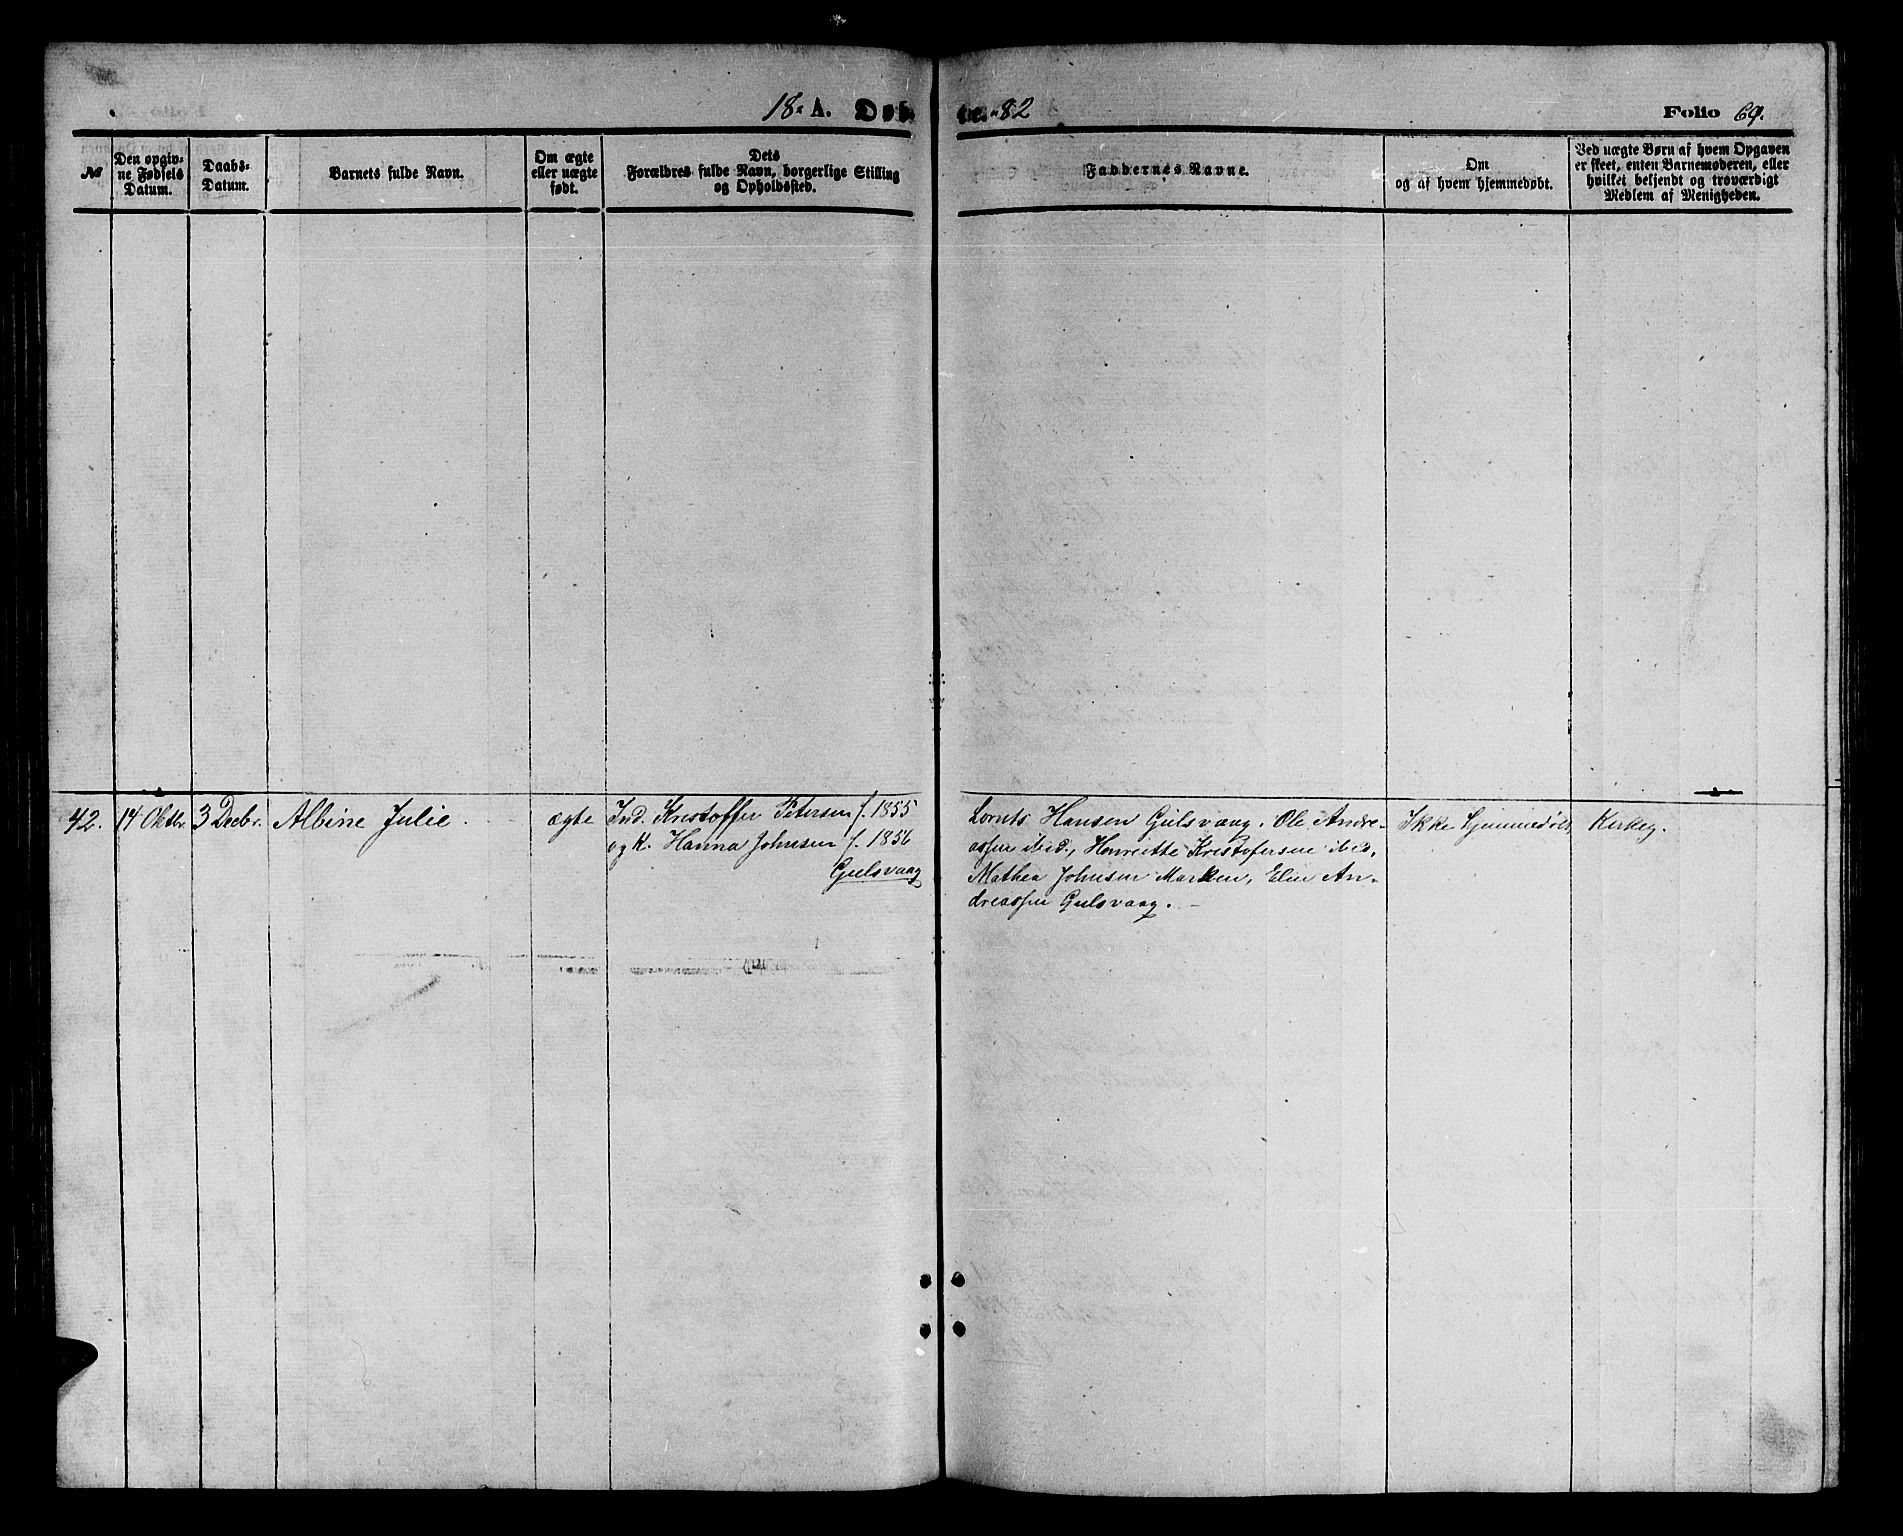 18 A. Døb-
te. 82
Folio 69.
No
Den opgiv-
ne Fødsels
Datum.
Daabs-
Datum.
Barnets fulde Navn.
Om ægte
eller uægte
født.
Dets
Forældres fulde Navn, borgerlige Stilling
og Opholdssted.
Faddernes Navne.
Om
og af hvem hjemmedøbt.
Ved uægte Børn af hvem Opgaven
er skeet, enten Barnemoderen, eller
hvilket bekjendt og troværdigt
Medlem af Menigheden.
42. 14 Oktbr. 3 Decbr. Albine Julie. ægte Ind. Kristoffer Petersen f. 1855
og K. Hanna Johnsen f. 1856
Gulsvaag
Lornts Hansen Gulsvaag. Ole Andre-
assen ibid., Henriette Kristofersen ibid.,
Mathea Johnsen Marken, Elen An-
dreassen Gulsvaag.
Ikke hjemmedøbt,
Kirkeg.